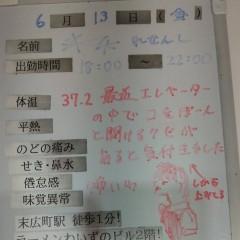 6月13日(金)
名前 れなんし
出勤時間 18:00 ~ 22:00
体温 37.2 最近エレベーター
平熱 の中でコをぽーん
のどの痛み と開けるクセが
せき・鼻水 あると気付きました
倦怠感 怖いね しかも
味覚異常
末広町駅 徒歩1分!
ラーメンわいずのビル2階!